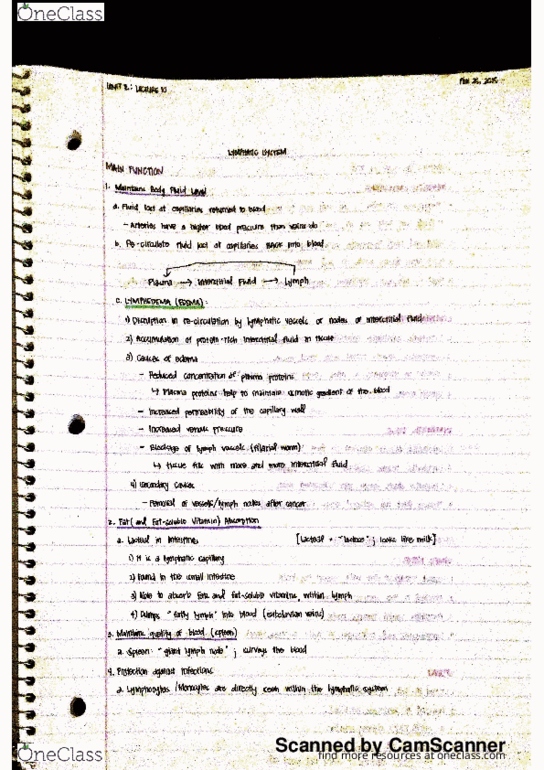 OneClass
UNIT 2: LECTURE 10
FEB 25, 2015
LYMPHATIC SYSTEM
MAIN FUNCTION
1. Maintains Body Fluid Level
a. Fluid lost at capillaries returned to blood
- Arteries have a higher blood pressure than veins do
b. Re-circulate fluid lost at capillaries back into blood
Plasma → Interstitial Fluid → Lymph
C. LYMPHEDEMA (EDEMA):
1) Disruption in re-circulation by lymphatic vessels or nodes of interstitial fluid
2) Accumulation of protein-rich interstitial fluid in tissue
3) Causes of edema
- Reduced concentration of plasma proteins
↳ Plasma proteins help to maintain osmotic gradient of the blood
- Increased permeability of the capillary wall
- Increased venous pressure
- Blockage of lymph vessels (filarial worm)
↳ tissue fills with more and more interstitial fluid
4) Secondary causes
- Removal of vessels/lymph nodes after cancer
2. Fat (and Fat-soluble Vitamin) Absorption
a. Lacteal in intestines [Lacteal = "lactose"; looks like milk]
1) It is a lymphatic capillary
2) Found in the small intestine
3) Help to absorb fats and fat-soluble vitamins within lymph
4) Dumps "fatty lymph" into blood (subclavian veins)
3. Maintains quality of blood (spleen)
a. Spleen: "giant lymph node"; surveys the blood
4. Protection against infections
a. Lymphocytes/Monocytes are directly seen within the lymphatic system
OneClass
Scanned by CamScanner
find more resources at oneclass.com